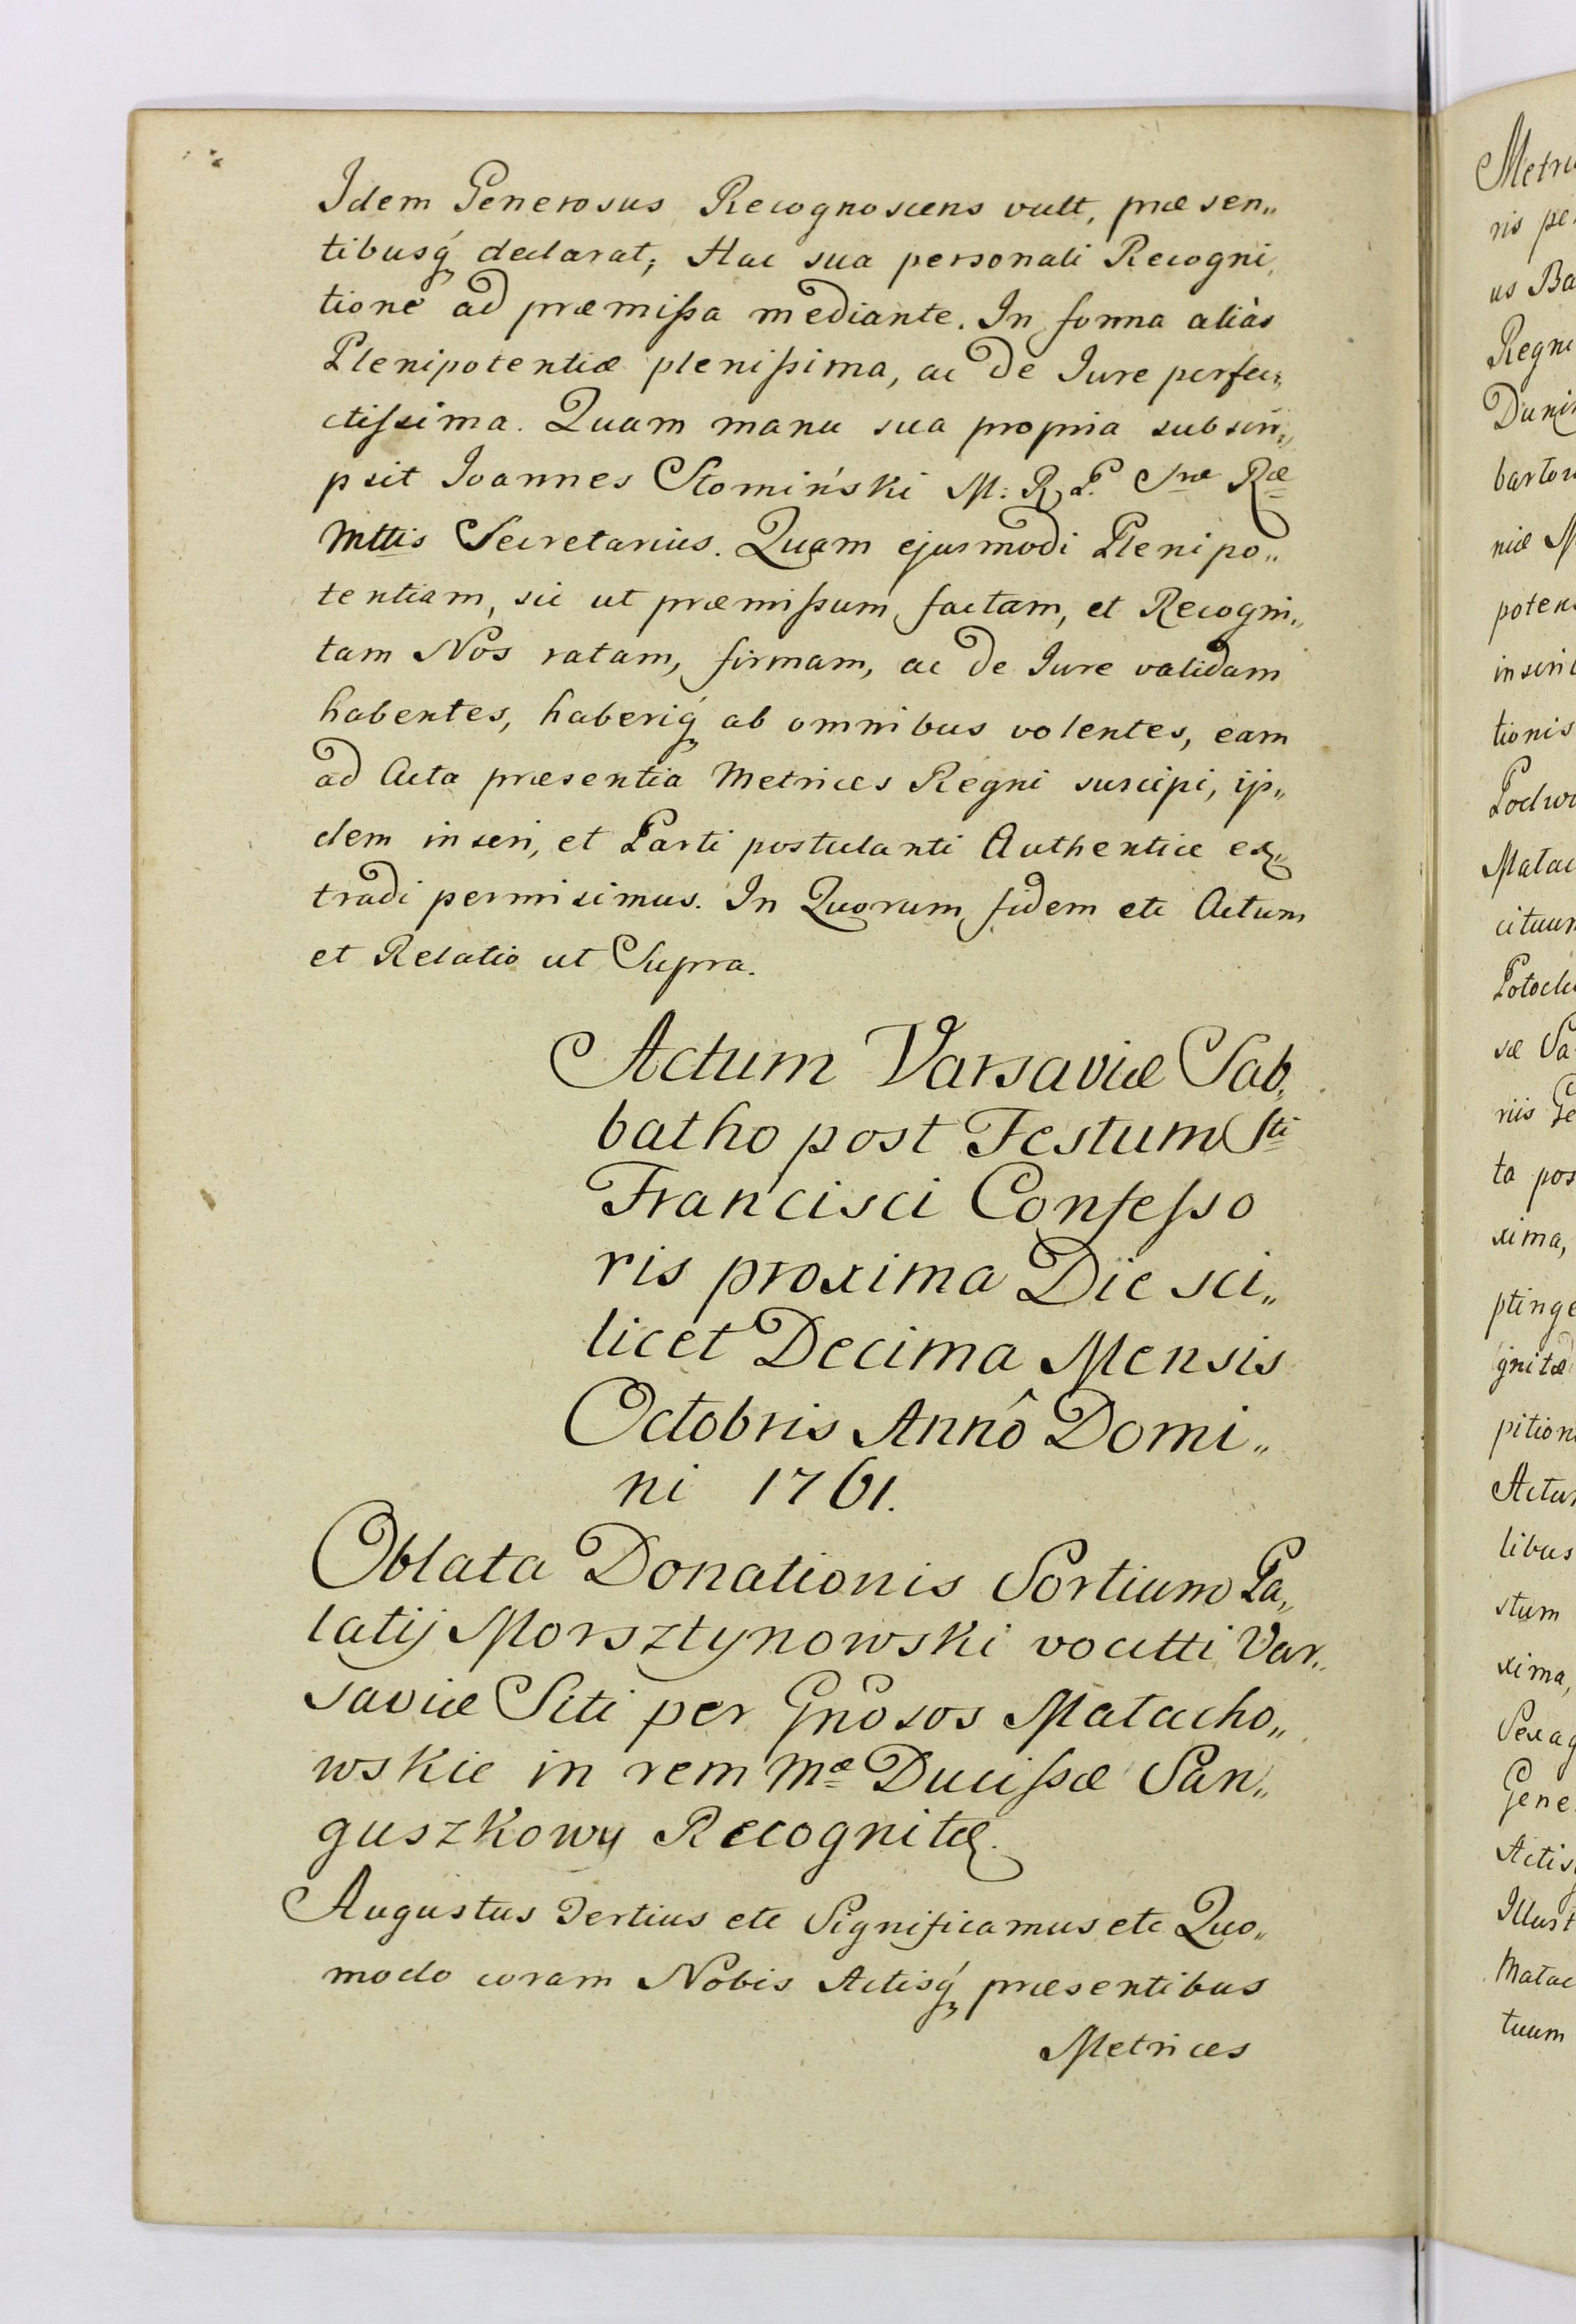 Idem Generosus Recognoscens vult, præsen„
tibusq́ declarat; Hac sua personali Recogni„
tione ad præmißa mediante. In forma aliàs
Plenipotentiæ plenißima, ac de Iure perfe„
ctißima. Quam manu sua propria subscri„
psit Ioannes Słomiński M: R. P. Sræ Ræ
Mttis Secretarius. Quam ejusmodi Plenipo„
tentiam, sic ut præmißum, factam, et Recogni„
tam Nos ratam, firmam, ac de Iure validam
habentes, haberiq́ ab omnibus volentes, eam
ad Acta præsentia Metrices Regni suscipi, ijs„
dem inseri, et Parti postulanti Authentice ex„
tradi permisimus. In Quorum fidem etc Actum
et Relatio ut Supra.
Actum Varsaviæ Sab„
batho post Festum Sti
Francisci Confeßo
ris proxima Die sci„
licet Decima Mensis
Octobris Annô Domi„
ni 1761.
Oblata Donationis Sortium Pa„
latij Morsztynowski vocitti Var„
saviæ Siti per Gnosos Małacho„
wskie in rem Mæ Ducißæ San„
guszkowy Recognitæ.
Augustus Tertius etc Significamus etc Quo„
modo coram Nobis Actisq́ præsentibus
Metrices
Regni
ris
us
Potocki
ta
xima,
ptinge
gnitæ
libus
stum
xima,
tuum